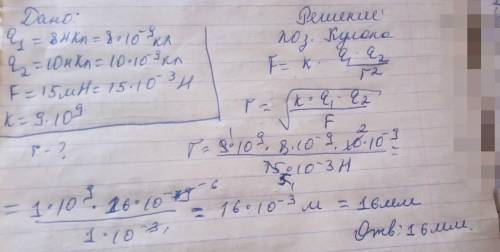 Дано:
q1 = 8нКл = 8·10⁻⁹кл
q2 = 10нКл = 10·10⁻⁹кл
F = 15мН = 15·10⁻³Н
k = 9·10⁹
r - ?
Решение:
поз. Кулона
F = k · q1·q2 / r²
r = √(k·q1·q2 / F)
r = 9·10⁹ · 8·10⁻⁹ · 10·10⁻⁹ / 15·10⁻³Н =
= 1·10⁹ · 16·10⁻ / 1·10⁻³ = 16·10⁻³ м = 16мм
Отв: 16мм.